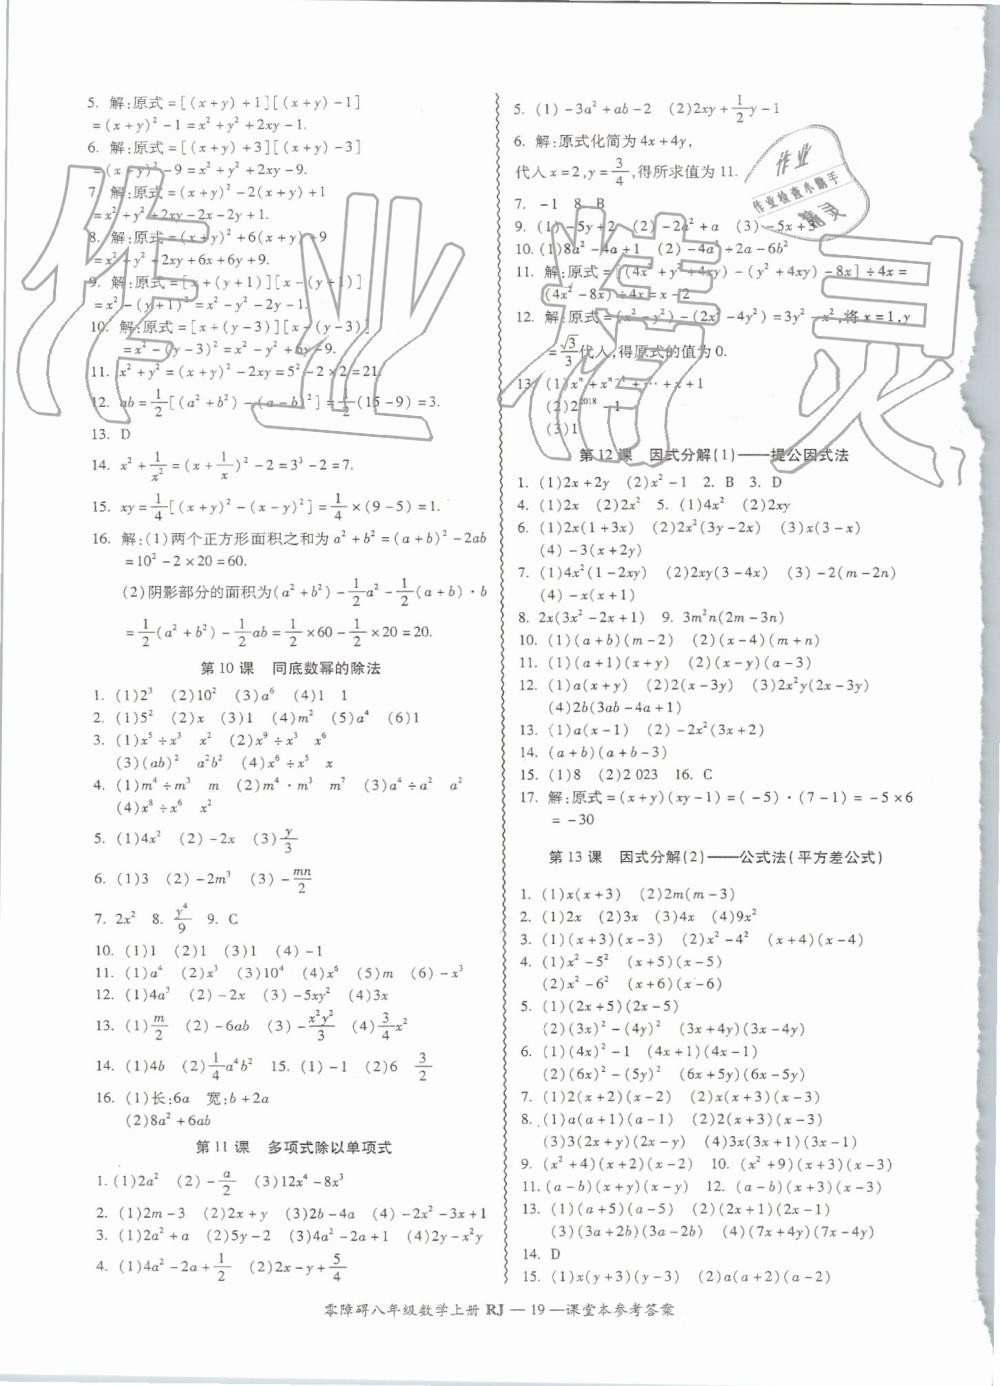 5. 解:原式=[(x+y)+1][(x+y)-1]
=(x+y)²-1=x²+y²+2xy-1.
6. 解:原式=[(x+y)+3][(x+y)-3]
=(x+y)²-9=x²+y²+2xy-9.
7. 解:原式=(x+y)²-2(x+y)+1
=x²+y²+2xy-2x-2y+1.
8. 解:原式=(x+y)²+6(x+y)+9
=x²+y²+2xy+6x+6y+9.
9. 解:原式=[x+(y+1)][x-(y+1)]
=x²-(y+1)²=x²-y²-2y-1.
10. 解:原式=[x+(y-3)][x-(y-3)]
=x²-(y-3)²=x²-y²+6y-9.
11. x²+y²=(x+y)²-2xy=5²-2×2=21.
12. ab=1/2[(a²+b²)-(a-b)²]=1/2(15-9)=3.
13. D
14. x²+1/x²=(x+1/x)²-2=3²-2=7.
15. xy=1/4[(x+y)²-(x-y)²]=1/4×(9-5)=1.
16. 解:(1)两个正方形面积之和为a²+b²=(a+b)²-2ab
=10²-2×20=60.
(2)阴影部分的面积为(a²+b²)-1/2a²-1/2(a+b)·b
=1/2(a²+b²)-1/2ab=1/2×60-1/2×20=20.
第10课 同底数幂的除法
1. (1)2³ (2)10² (3)a⁶ (4)1 1
2. (1)5² (2)x (3)1 (4)m² (5)a⁴ (6)1
3. (1)x⁵÷x³ x² (2)x⁹÷x³ x⁶
(3)(ab)² a²b² (4)x⁶÷x⁵ x
4. (1)m⁴÷m³ m (2)m⁴·m³ m⁷ (3)a⁴÷a² a²
(4)x⁸÷x⁶ x²
5. (1)4x² (2)-2x (3)y/3
6. (1)3 (2)-2m³ (3)-mn/2
7. 2x² 8. y⁴/9 9. C
10. (1)1 (2)1 (3)1 (4)-1
11. (1)a⁴ (2)x³ (3)10⁴ (4)x⁶ (5)m (6)-x³
12. (1)4a³ (2)-2x (3)-5xy² (4)3x
13. (1)m/2 (2)-6ab (3)-x²y²/3 (4)3/4x²
14. (1)4b (2)1/4a⁴b² 15. (1)-1 (2)6 3/2
16. (1)长:6a 宽:b+2a
(2)8a²+6ab
第11课 多项式除以单项式
1. (1)2a² (2)-a/2 (3)12x⁴-8x³
2. (1)2m-3 (2)2x+y (3)2b-4a (4)-2x²-3x+1
3. (1)2a²+a (2)5y-2 (3)4a²-2a+1 (4)2y-x²y
4. (1)4a²-2a+1/2 (2)2x-y+5/4
5. (1)-3a²+ab-2 (2)2xy+1/2y-1
6. 解:原式化简为4x+4y,
代入x=2,y=3/4,得所求值为11.
7. -1 8. B
9. (1)5y+2 (2)-2a²+a (3)-5x+3
10. (1)8a²-4a+1 (2)-4a²+2a-6b²
11. 解:原式=[(4x²+y²+4xy)-(y²+4xy)-8x]÷4x=
(4x²-8x)÷4x=x-2
12. 解:原式=(x²-y²)-(2x²-4y²)=3y²-x²,将x=1,y
=√3/3代入,得原式的值为0.
13. (1)xⁿ+xⁿ⁻¹+…+x+1
(2)2²⁰¹⁸-1
(3)1
第12课 因式分解(1)——提公因式法
1. (1)2x+2y (2)x²-1 2. B 3. D
4. (1)2x (2)2x² 5. (1)4x² (2)2xy
6. (1)2x(1+3x) (2)2x²(3y-2x) (3)x(3-x)
(4)-3(x+2y)
7. (1)4x²(1-2xy) (2)2xy(3-4x) (3)-2(m-2n)
(4)-x(x+1)
8. 2x(3x²-2x+1) 9. 3m²n(2m-3n)
10. (1)(a+b)(m-2) (2)(x-4)(m+n)
11. (1)(a+1)(x+y) (2)(x-y)(a-3)
12. (1)a(x+y) (2)2(x-3y) (3)2x²y(2x-3y)
(4)2b(3ab-4a+1)
13. (1)a(x-1) (2)-2x²(3x+2)
14. (a+b)(a+b-3)
15. (1)8 (2)2 023 16. C
17. 解:原式=(x+y)(xy-1)=(-5)·(7-1)=-5×6
=-30
第13课 因式分解(2)——公式法(平方差公式)
1. (1)x(x+3) (2)2m(m-3)
2. (1)2x (2)3x (3)4x (4)9x²
3. (1)(x+3)(x-3) (2)x²-4² (x+4)(x-4)
4. (1)x²-5² (x+5)(x-5)
(2)x²-6² (x+6)(x-6)
5. (1)(2x+5)(2x-5)
(2)(3x)²-(4y)² (3x+4y)(3x-4y)
6. (1)(4x)²-1 (4x+1)(4x-1)
(2)(6x)²-(5y)² (6x+5y)(6x-5y)
7. (1)2(x+2)(x-2) (2)x(x+3)(x-3)
8. (1)a(a+1)(a-1) (2)2(x+3)(x-3)
(3)3(2x+y)(2x-y) (4)3x(3x+1)(3x-1)
9. (x²+4)(x+2)(x-2) 10. (x²+9)(x+3)(x-3)
11. (a-b)(x+y)(x-y) 12. (a-b)(x+3)(x-3)
13. (1)(a+5)(a-5) (2)(2x+1)(2x-1)
(3)(3a+2b)(3a-2b) (4)(7x+4y)(7x-4y)
14. D
15. (1)x(y+3)(y-3) (2)a(a+2)(a-2)
零障碍八年级数学上册 RJ — 19 —课堂本参考答案
作业
作业检查小助手
精灵
作业精灵